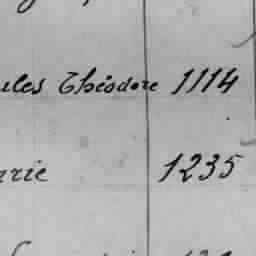 ules Théodore 1114
arie 1235